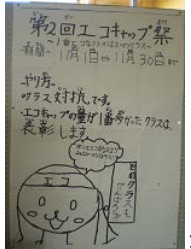 第2回エコキャップ祭
11月1日から11月30日まで
〜やり方〜
クラス対抗です。
エコキャップの量が1番多かったクラスは、
表彰します
エコ
どのクラスも
がんばろう